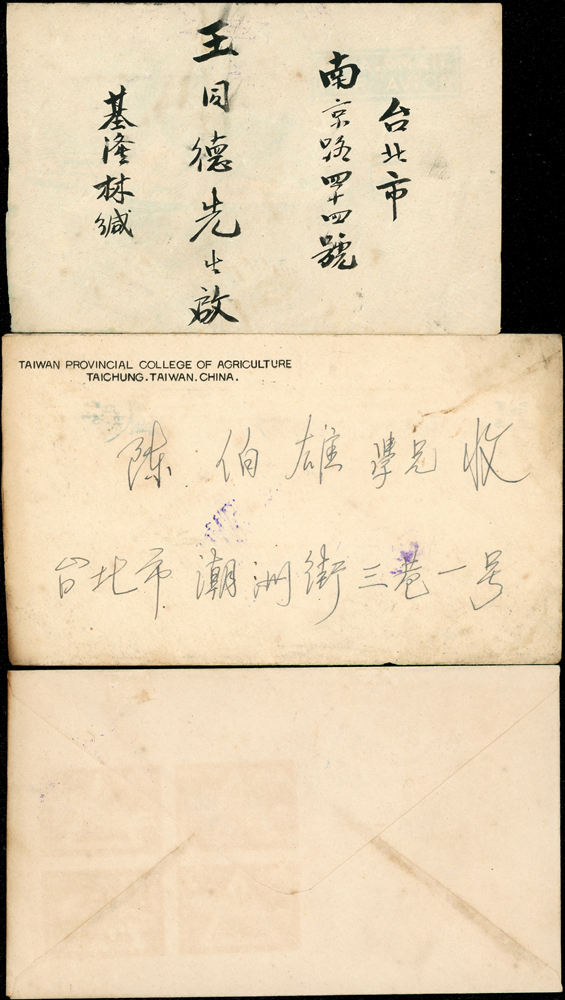 台北市
南京路四十四號
王同德先生啟
基隆林緘
TAIWAN PROVINCIAL COLLEGE OF AGRICULTURE
TAICHUNG. TAIWAN. CHINA.
陈伯雄學兄收
台北市潮洲街三巷一号